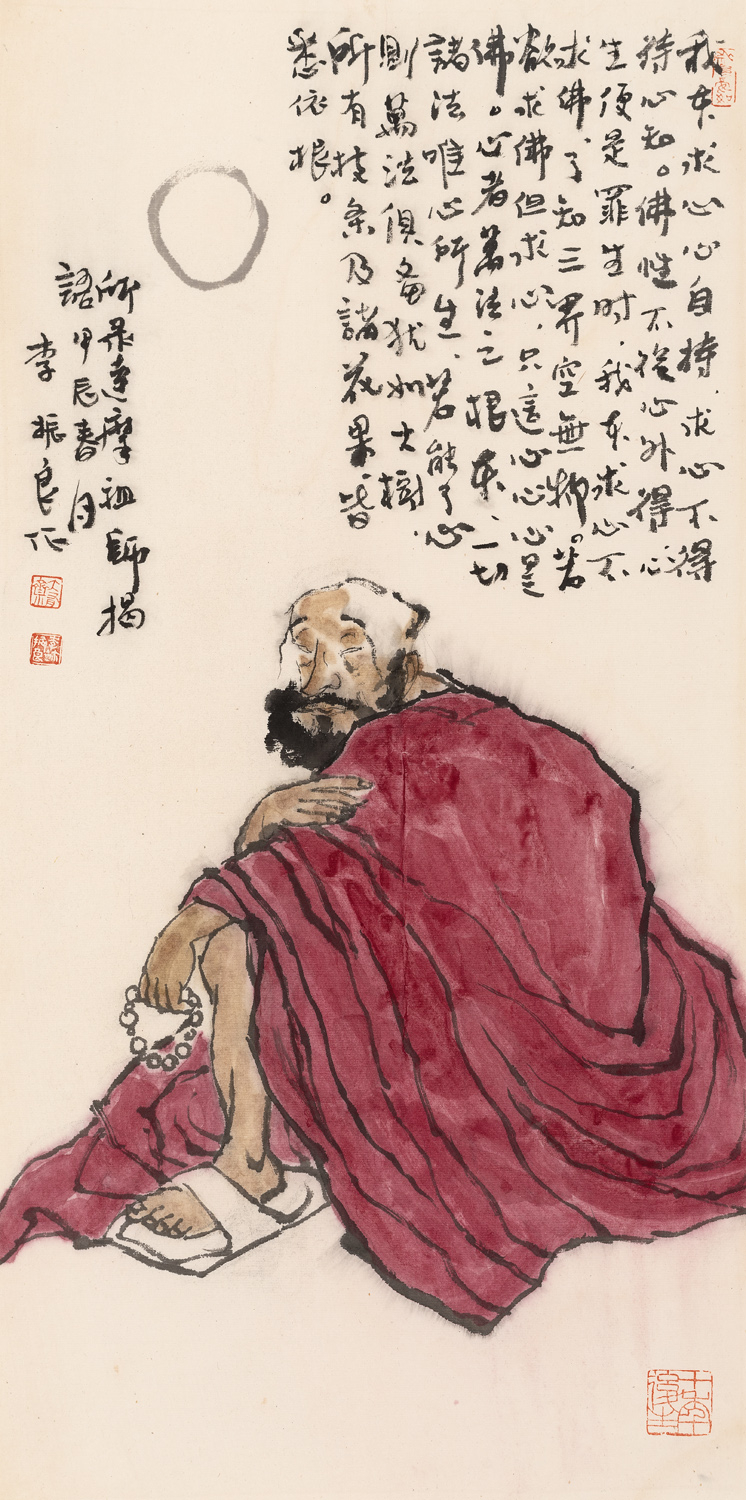 我本求心心自持，求心不得
待心知。佛性不從心外得心
生便是罪生时，我本求心不
求佛了知三界空無物。若
欲求佛但求心，只這心心心是
佛。心者萬法之根本，一切
諸法唯心所生，若能了心
則萬法俱備犹如大樹，
所有枝条及諸花果皆
悉依根。
所录達摩祖師揭
語甲辰春月
李振良作